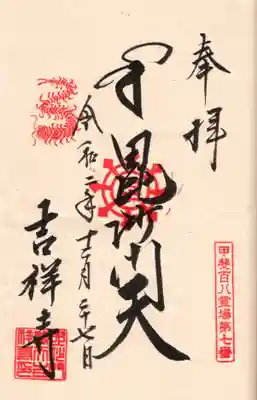 奉拝
甲斐百八霊場第七番
毘沙門天
令和二年十二月二十七日
吉祥寺